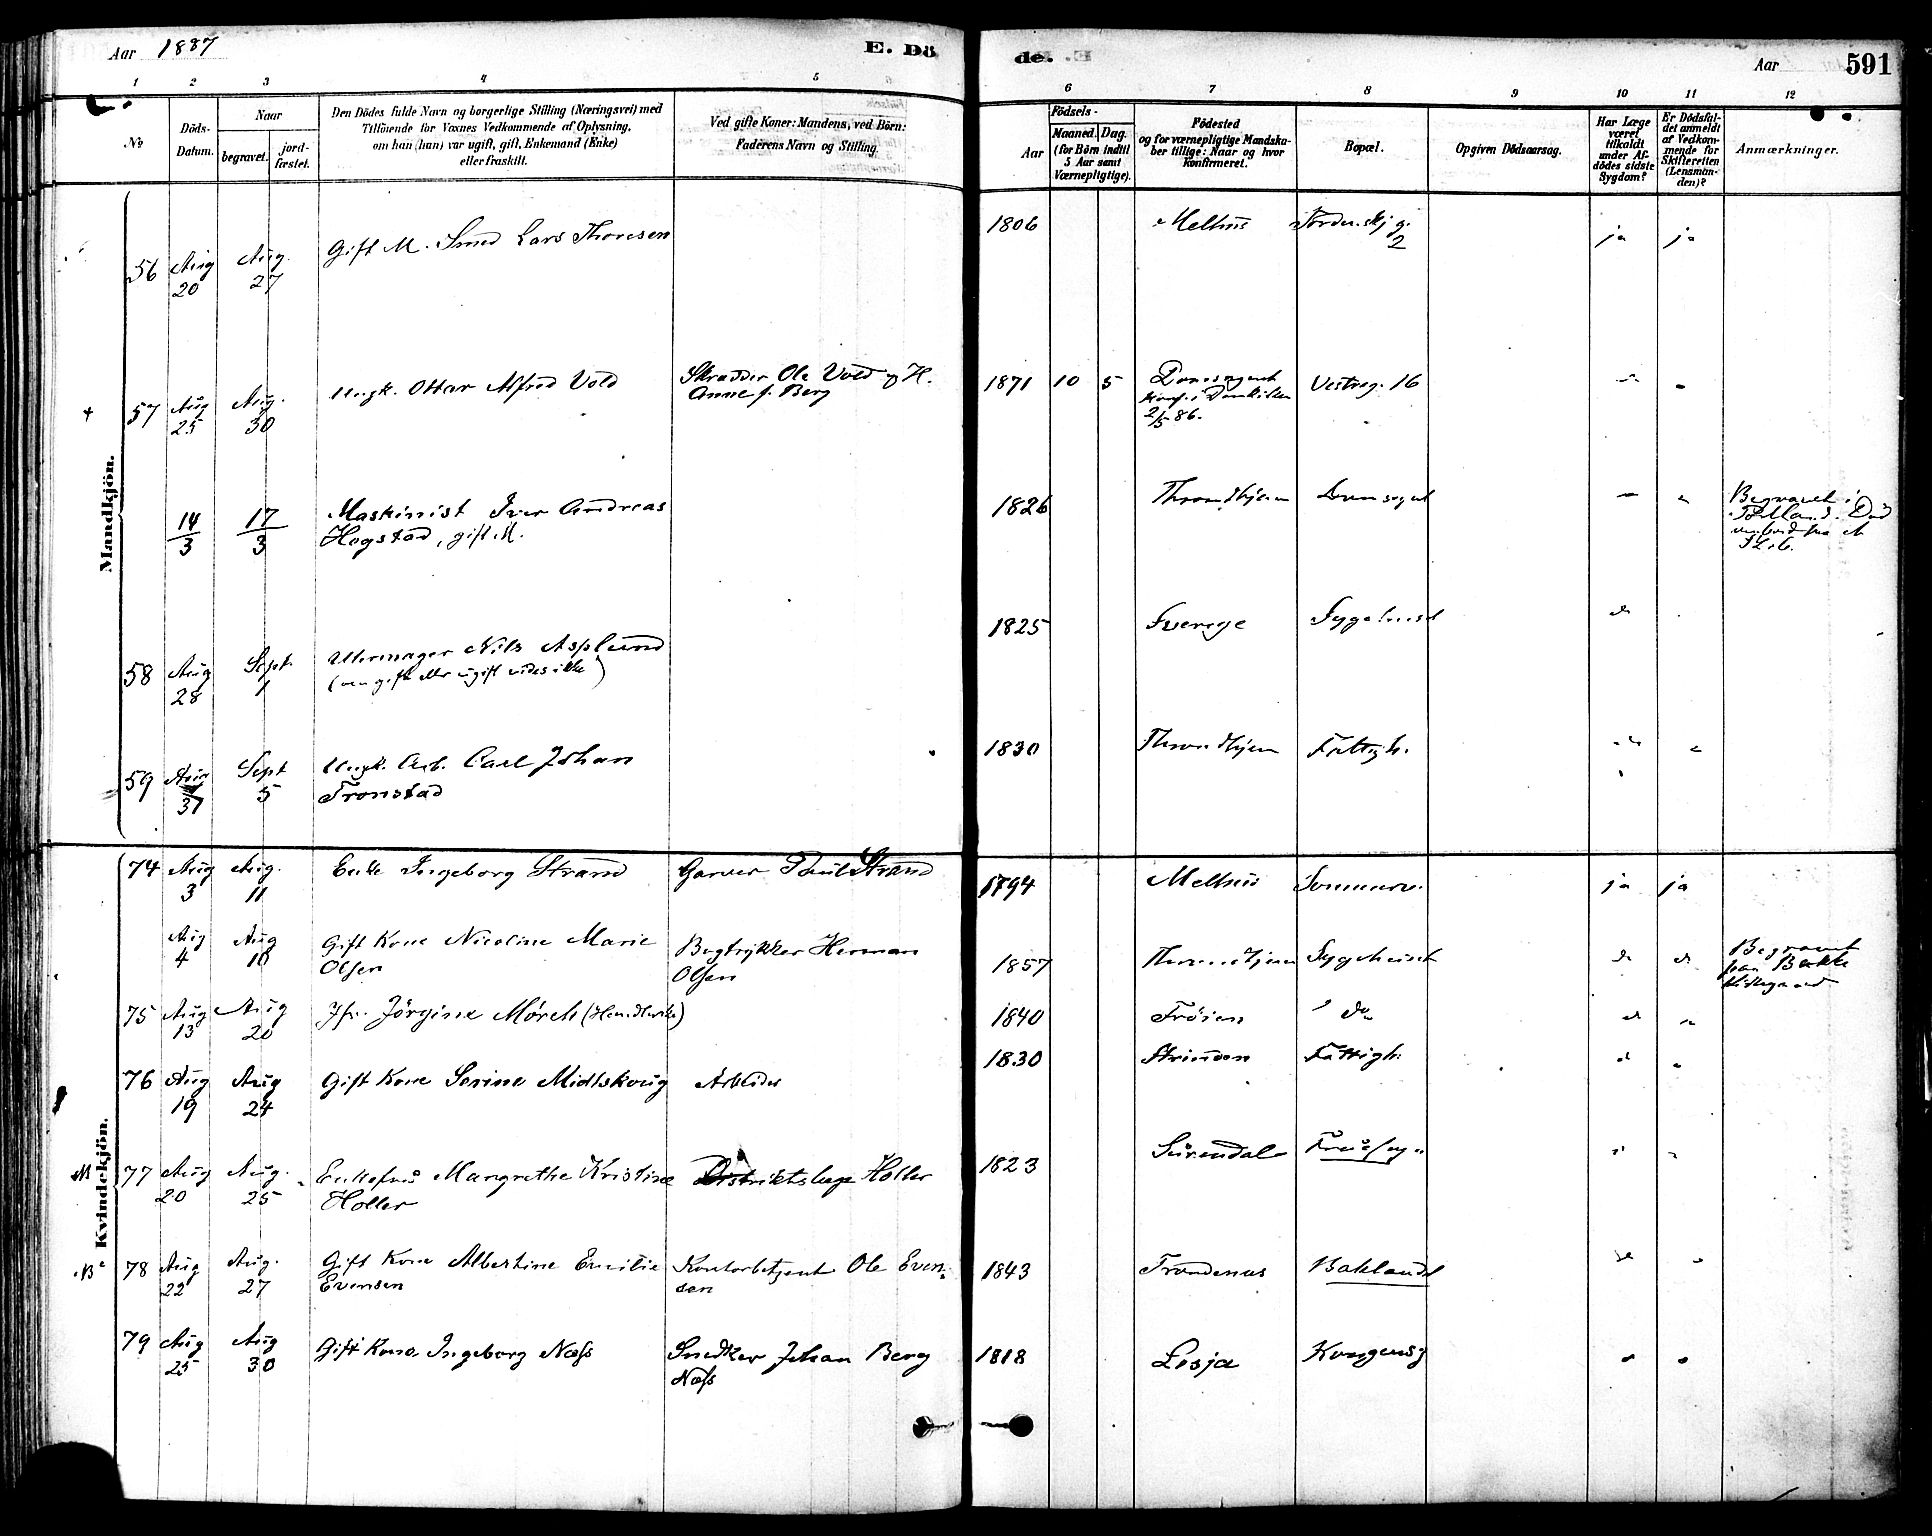 Aar 1887
E. Dö
de.
Aar
591
1 2 3 4 5
6 7 8 9 10 11 12
No
Döds-
Datum.
Naar
begravet.
jord-
fæstet.
Den Dödes fulde Navn og borgerlige Stilling (Næringsvei) med
Tilföiende for Voxnes Vedkommende af Oplysning,
om han (hun) var ugift, gift, Enkemand (Enke)
eller fraskilt.
Ved gifte Koner: Mandens, ved Börn:
Faderens Navn og Stilling.
Födsels-
Aar
Maaned. Dag.
(for Börn indtil
5 Aar samt
Værnepligtige).
Födested
og for værnepligtige Mandska-
ber tillige: Naar og hvor
Konfirmeret.
Bopæl.
Opgiven Dödsaarsag.
Har Læge
været
tilkaldt
under Af-
dödes sidste
Sygdom?
Er Dödsfal-
det anmeldt
af Vedkom-
mende for
Skifteretten
(Lensman-
den)?
Anmærkninger.
Mandkjön.
56 Aug 20 Aug. 27 Gift M. Smed Lars Thoresen 1806 Melhus Tordenskj. g. 2 ja ja
57 Aug 25 Aug. 30 Ungk. Ottar Alfred Vold
Skrædder Ole Vold og H.
Anne f. Berg
1871 10 5 Domsognet
Konf. i Domkirken
2/5 86.
Vestreg. 16
14/3 17/3 Maskinist Iver Andreas
Hegstad, gift M.
1826 Throndhjem Domsognet
Begravet i
58 Aug 28 Sept. 1 Uhrmager Nils Asplund
(om gift eller ugift vides ikke)
1825 Sverige Sygehuset
59 Aug 31 Sept 5 Ungk. Arb. Carl Johan
Tronstad
1830 Throndhjem Fattigh.
Kvindekjön.
74 Aug 3 Aug. 11 Enke Ingeborg Strand Garver Paul Strand 1794 Melhus ja ja
Aug 4 Aug 10 Gift Kone Nicoline Marie
Olsen
Bogtrykker Herman
Olsen
1857 Throndhjem Sygehuset do do
Begravet
paa Bakke
Kirkegaard
75 Aug 13 Aug 20 Jfr. Jörgine Mörch 1840 Fröien do
76 Aug 19 Aug 24 Gift Kone Serine Midtskoug Arbeider 1830 Strinden Fattigh.
M 77 Aug 20 Aug. 25 Enkefru Margrethe Kristine
Holler
Distriktslæge Holler 1823 Surendal
B 78 Aug 22 Aug. 27 Gift Kone Albertine Emilie
Evensen
Kontorbetjent Ole Even-
sen
1843 Trondenæs Baklandet
79 Aug 25 Aug 30 Gift Kone Ingeborg Næss
Snedker Johan Berg
Næss
1818 Lesja Kongensg